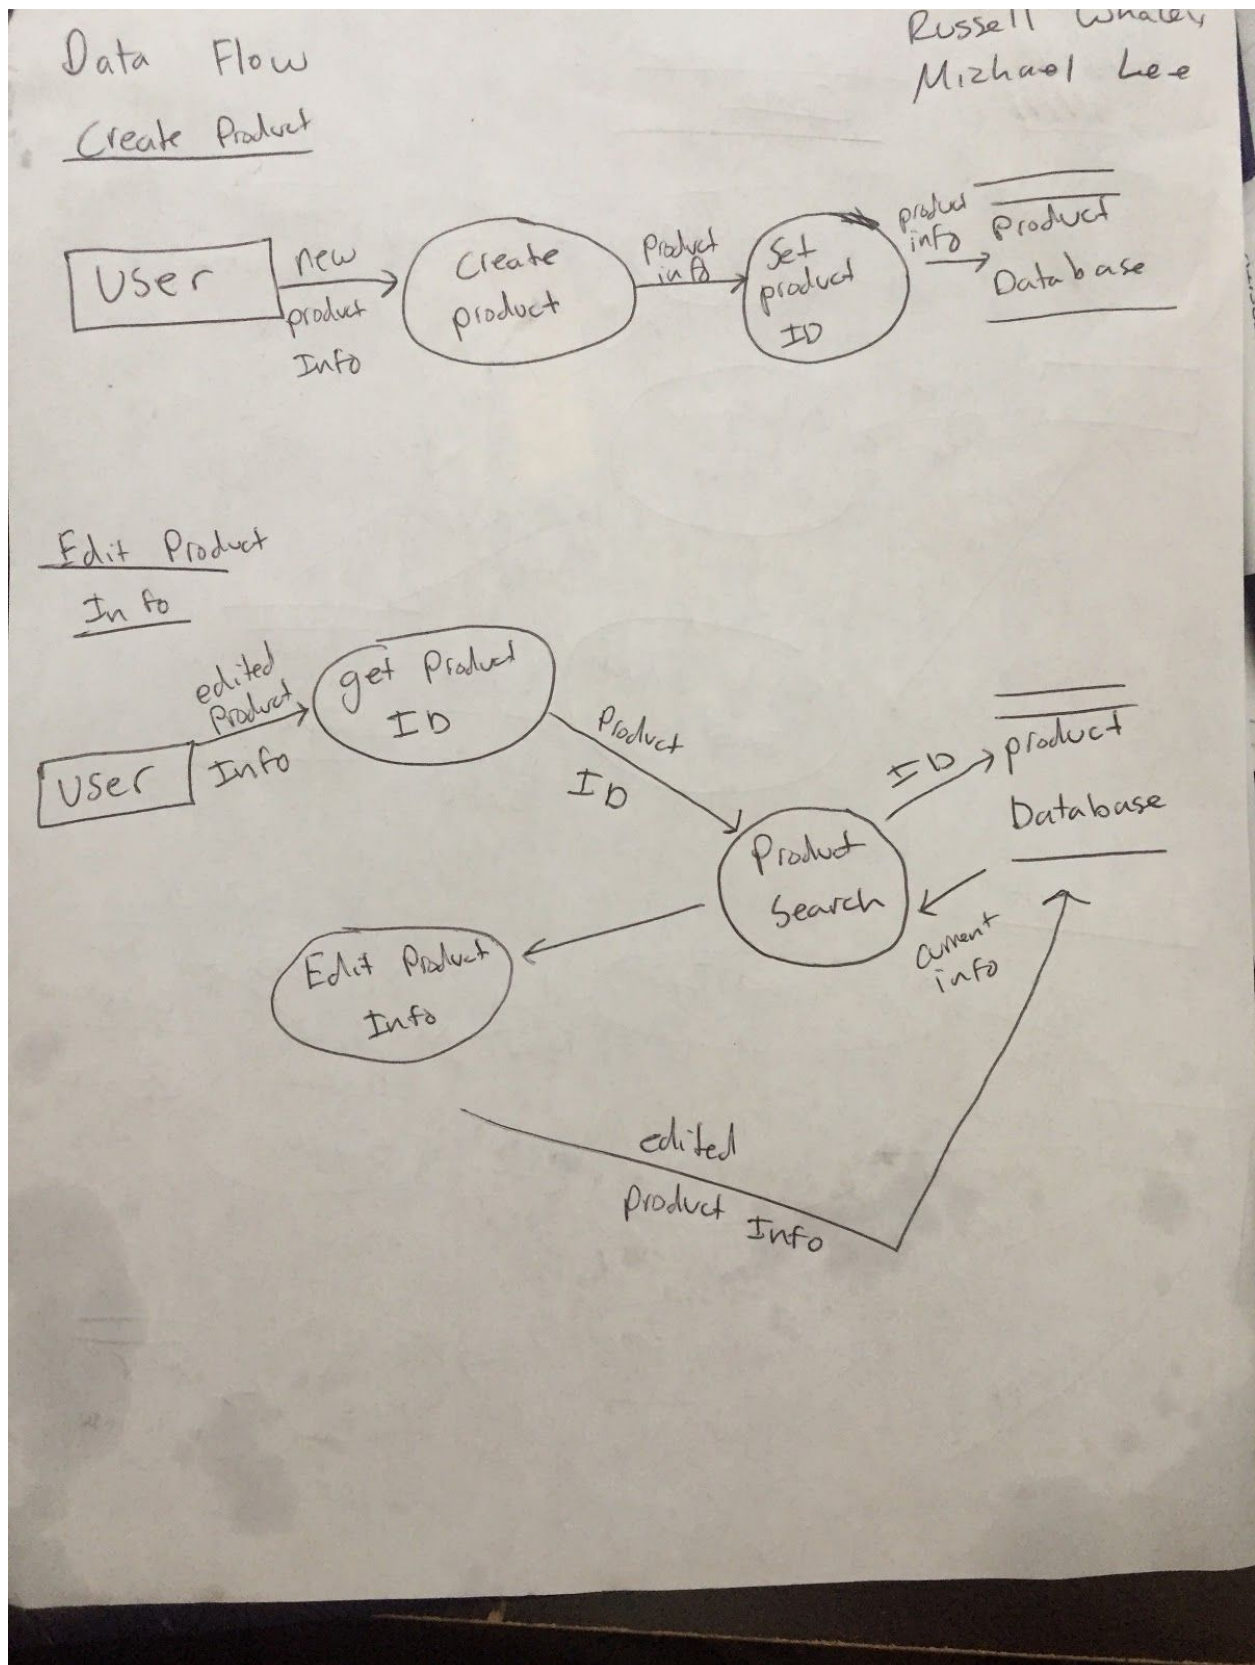 Data Flow
Russell Whaley
Michael Lee
Create Product
User
new
product
Info
Create
product
Product
info
Set
product
ID
product
info
Product
Database
Edit Product
Info
User
edited
Product
Info
get Product
ID
Product
ID
Product
Search
ID
product
Database
current
info
Edit Product
Info
edited
product Info